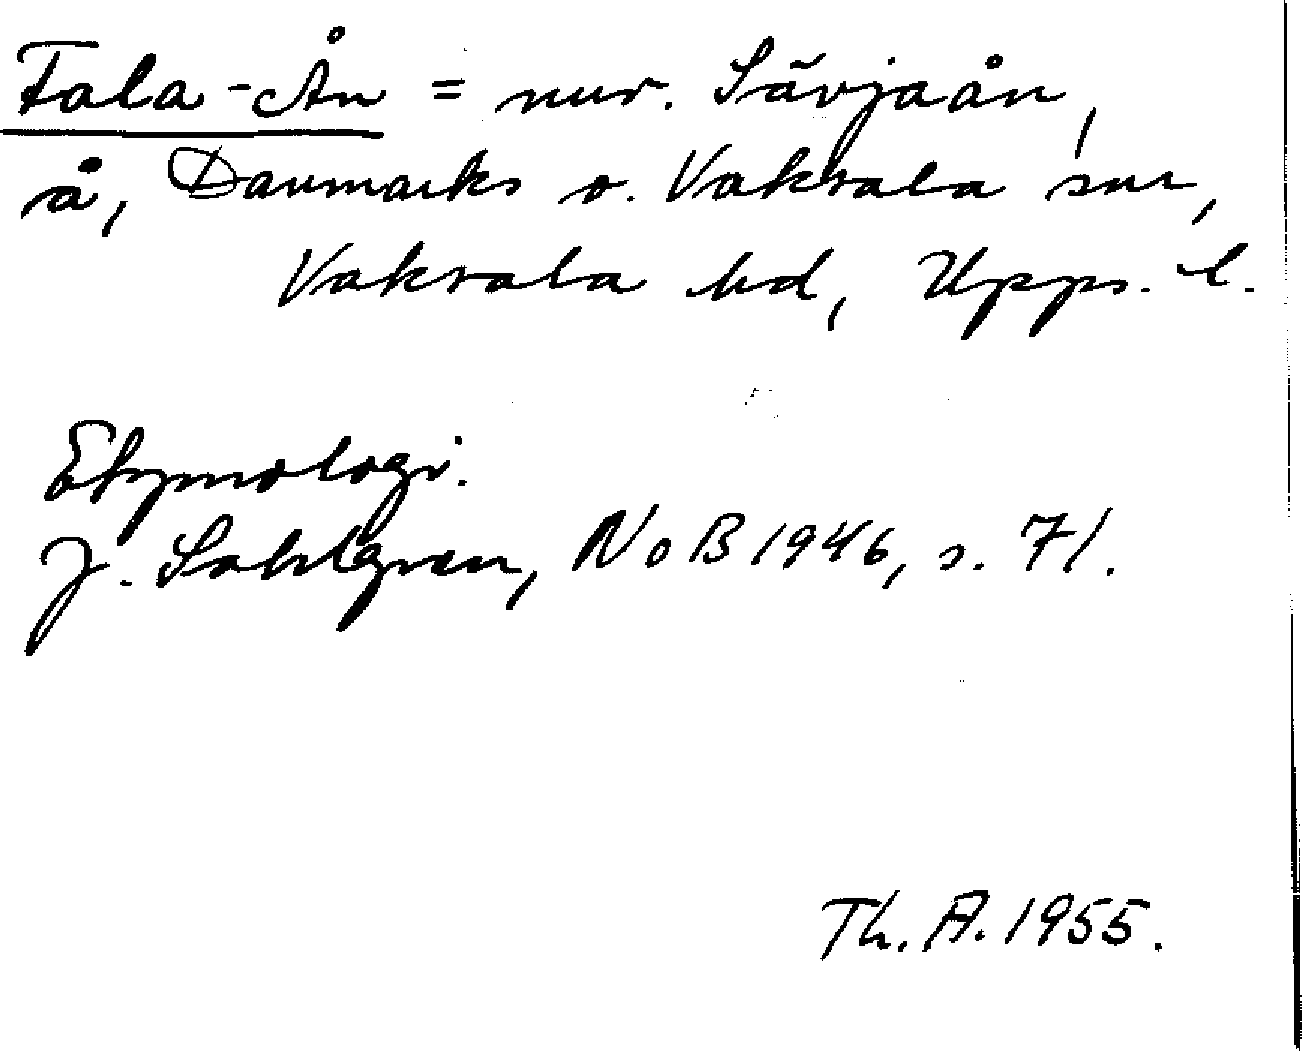 Fala-Ån = nuv. Sävjaån,
å, Danmarks o. Vaksala snr,
Vaksala hd, Upps. l.
Etymologi.
J. Sahlgren, NoB 1946, s. 71.
Th. A. 1955.